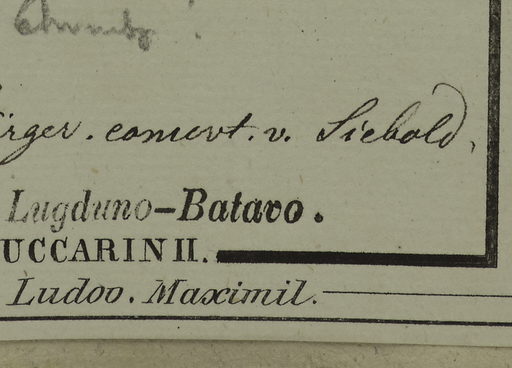 ürger. comert. v. Siebold,
Lugduno-Batavo.
UCCARINII.
Ludov. Maximil.